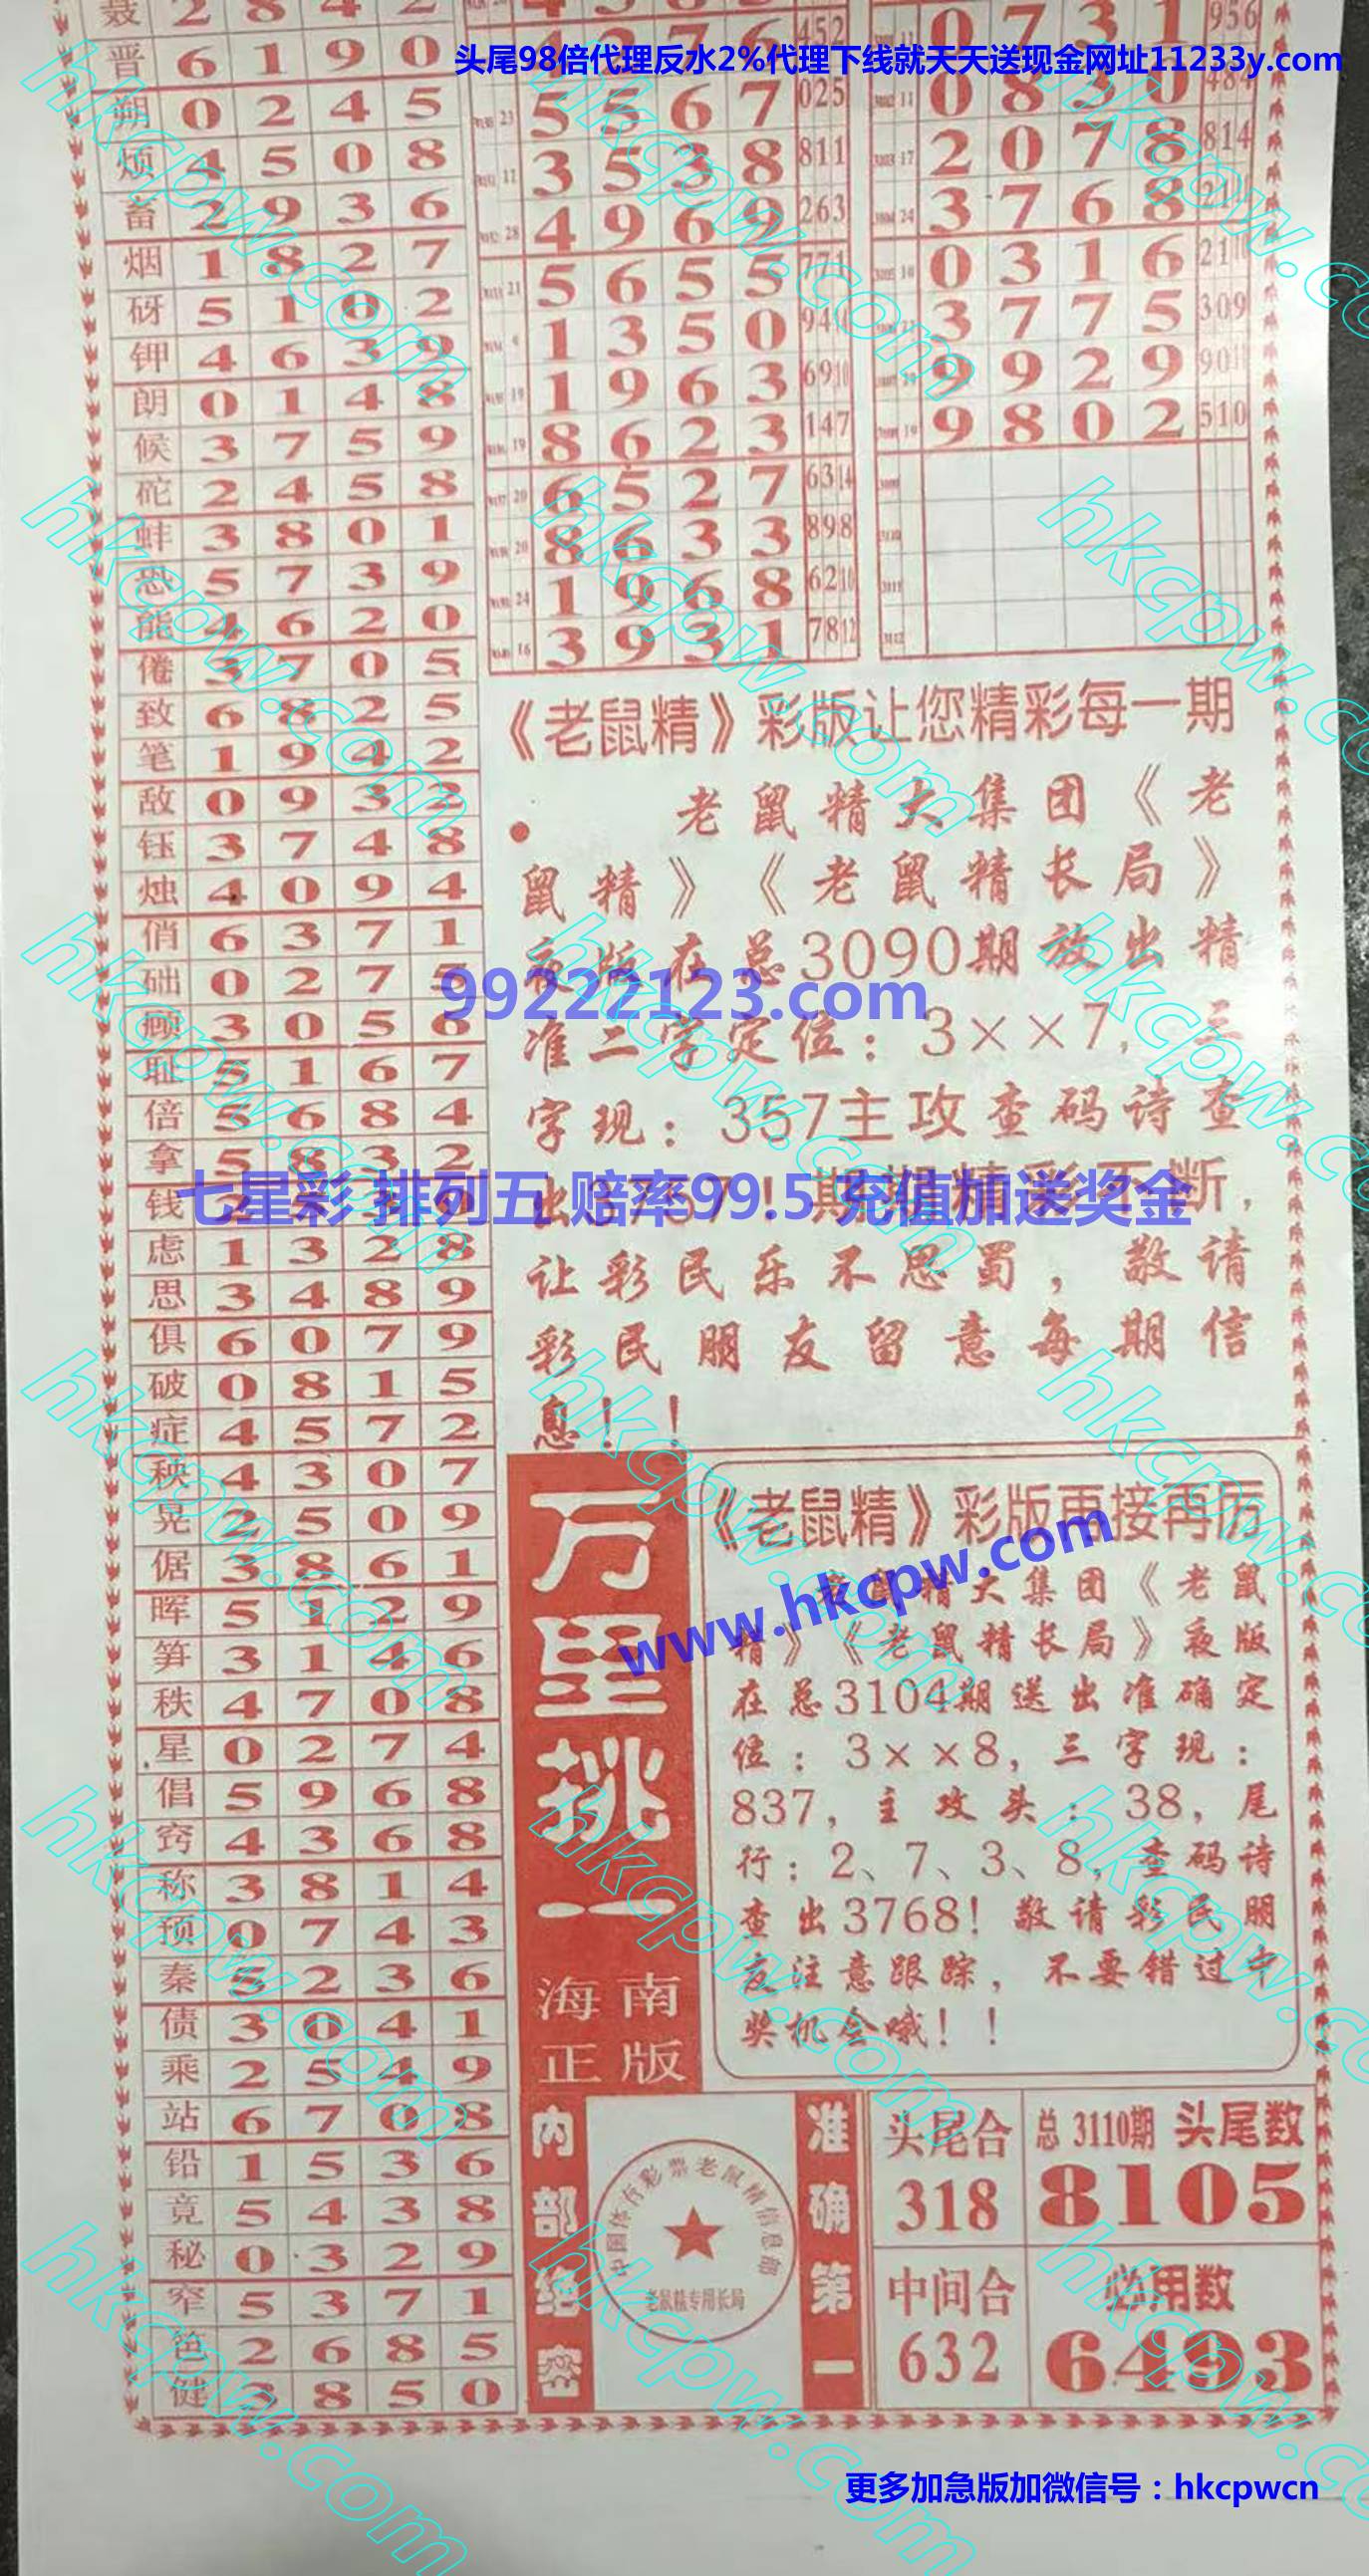 头尾98倍代理反水2%代理下线就天天送现金网址11233y.com
聂 2 8 4 2
晋 6 1 9 0
朔 0 2 4 5
烦 4 5 0 8
畜 2 9 3 6
烟 1 8 2 7
砑 5 1 0 2
钾 4 6 3 9
朗 0 1 4 8
候 3 7 5 9
砣 2 4 5 8
蚌 3 8 0 1
恐 5 7 3 9
能 4 6 2 0
倦 3 7 0 5
致 6 8 2 5
笔 1 9 4 2
敌 0 9 3 2
钰 3 7 4 8
烛 4 0 9 4
俏 6 3 7 1
础 0 2 7 5
顾 3 0 5 6
耻 5 1 6 7
倍 5 6 8 4
拿 5 8 3 2
钱
虑 1 3 2 8
思 3 4 8 9
俱 6 0 7 9
破 0 8 1 5
症 4 5 7 2
秧 4 3 0 7
晃 2 5 0 9
倨 3 8 6 1
晖 5 1 2 9
笋 3 1 4 6
秩 4 7 0 8
星 0 2 7 4
倡 5 9 6 8
窍 4 3 6 8
称 3 8 1 4
预 0 7 4 3
秦 5 2 3 6
债 3 0 4 1
乘 2 5 4 9
站 6 7 0 8
铅 1 5 3 6
竟 5 4 3 8
秘 0 3 2 9
窄 5 3 7 1
笆 2 6 8 5
健 3 8 5 0
4 2 7 6 452
23 5 5 6 7 025
12 3 5 3 8 811
28 4 9 6 9 263
21 5 6 5 5 771
1 3 5 0
19 1 9 6 3 6910
19 8 6 2 3 147
20 6 5 2 7 6314
20 8 6 3 3 898
24 1 9 6 8 6210
16 3 9 3 1 7812
11 0 7 3 1 956
11 0 8 3 0 484
17 2 0 7 8 814
24 3 7 6 8
10 0 3 1 6 2110
3 7 7 5 309
9 9 2 9
19 9 8 0 2 510
《老鼠精》彩版让您精彩每一期
老鼠精大集团《老
鼠精》《老鼠精长局》
夜版在总3090期放出精
准二字定位：3××7，三
字现：357主攻查码诗查
出3737！期期精彩不断，
让彩民乐不思蜀，敬请
彩民朋友留意每期信
息！！
99222123.com
七星彩 排列五 赔率99.5 充值加送奖金
万里挑一
海南
正版
《老鼠精》彩版再接再厉
老鼠精大集团《老鼠
精》《老鼠精长局》夜版
在总3104期送出准确定
位：3××8，三字现：
837，主攻头：38，尾
行：2、7、3、8，查码诗
查出3768！敬请彩民朋
友注意跟踪，不要错过中
奖机会哦！！
www.hkcpw.com
内部绝密
中国体育彩票老鼠精信息部
老鼠精专用长局
准确第一
头尾合
318
总 3110期 头尾数
8105
中间合
632
必用数
6493
更多加急版加微信号：hkcpwcn
hkcpw.com